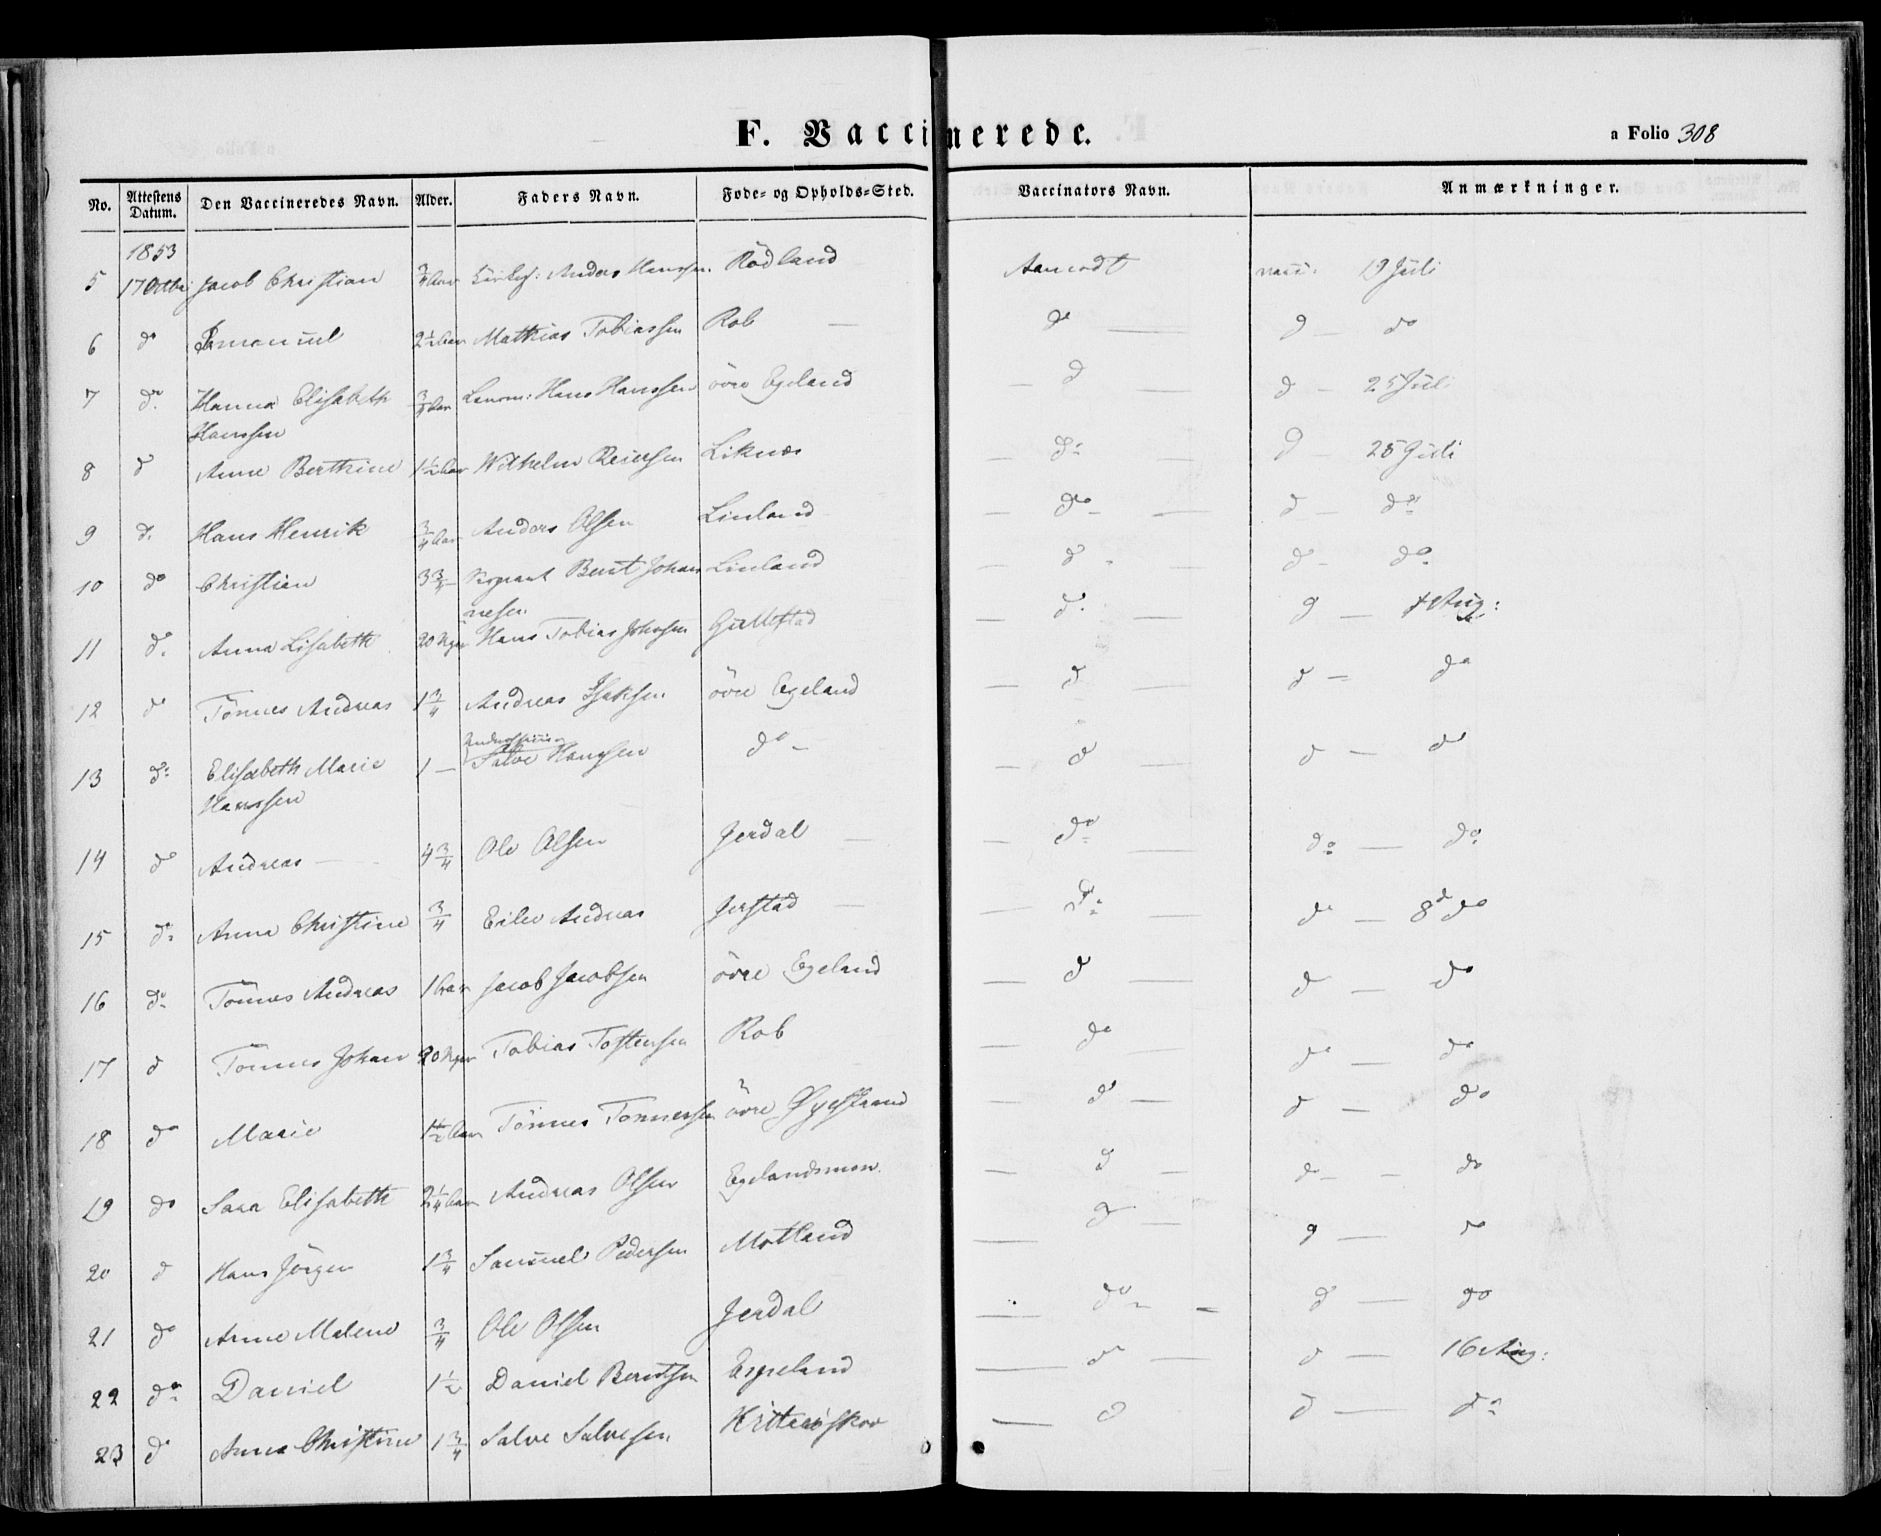 F. Vaccinerede.
a Folio 308
No. Attestens Datum. Den Vaccineredes Navn. Alder. Faders Navn. Føde- og Opholds-Sted. Vaccinators Navn. Anmærkninger.
1853
5 17 Octbr Jacob Christian 3/4 Aar Anders Hanssen Rödland Aamodt vacc: 19 Juli
6 do Emanuel 2 1/2 Aar Mathias Tobiassen Rob — do — d — do
7 do. Hanna Elisabeth 3/4 Aar Hans Hanssen övre Egeland — d — d — 25 Juli
Hanssen
8 d Anne Berthine 1 1/2 Aar Wilhelm Reiersen Liknes — do — d 25 Juli
9 d. Hans Henrik 3/4 Aar Anders Olsen Linland — do — d — do
10 do Christian 3 3/4 — Sergeant Bent Johan Linland — d — d — do
nesen
11 do. Anna Lisabeth 20 Uger Hans Tobias Johnsen Gullestad — d. — d — Aug:
12 do Tönnes Andreas 1 3/4 Andreas Isaksen övre Egeland — d — d — do
13 do: Elisabeth Marie 1 — Salve Hanssen do — — d — d — do
Hanssen
14 do Andreas — 4 3/4 Ole Olsen Jerdal — — do — do — do
15 do: Anna Christine 3/4 Eilev Andreas Jerstad — — do: — do — 8d do
16 do: Tönnes Andreas 1 Aar Jacob Jacobsen övre Egeland — d — do — do
17 d Tönnes Johan 20 Uger Tobias Tostensen Rob — do — do — do
18 do Marie 1 1/2 Aar Tönnes Tönnessen övre Øyestrand — do — d — do
19 do Sara Elisabeth 2 1/4 Aar Andreas Olsen Egelandsmoen — d — do — do
20 d Hans Jörgen 1 3/4 Samuel Pedersen Motland — d — d — do
21 do Anne Malene 3/4 Ole Olsen Jerdal — do — d — do
22 do Daniel 1 1/2 Daniel Berntsen Espeland — do — d — 16 Aug:
23 do Anna Christine 1 3/4 Salve Salvesen — d — d — do